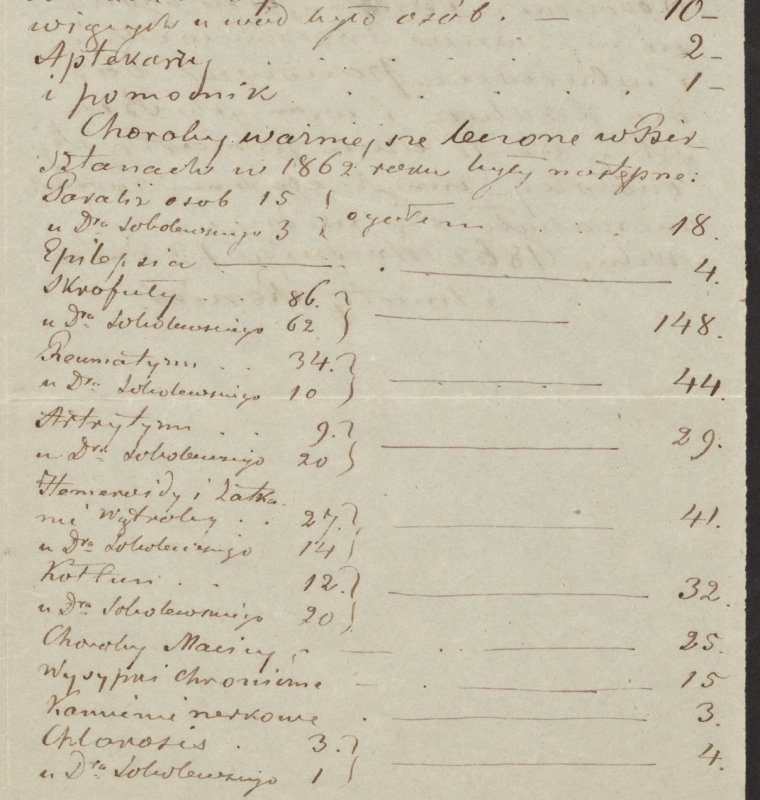 u wód było osób. — 10–
Aptekarzy . . . . 2–
i pomocnik . . . . 1–
Choroby ważniejsze leczone w Bir-
sztanach w 1862 roku były następne:
Paraliż osób 15 } ogółem . . . 18.
u Dra Sobolewskiego 3
Epilepsia — . — 4.
Skrofuły . . 86. } — 148.
u Dra Sobolewskiego 62
Reumatyzm . . 34. } — 44.
u Dra Sobolewskiego 10
Artrytyzm . . 9. } — 29.
u Dra Sobolewskiego 20
Hemeroidy i Zatka-
nie wątroby . . 27. } — 41.
u Dra Sobolewskiego 14
Kołtun . . 12. } — 32.
u Dra Sobolewskiego 20
Choroby Macicy . — . . — 25.
Wysypki chroniczne — . — 15
Kamienie nerkowe . — 3.
Chlorosis . 3. } — 4.
u Dra Sobolewskiego 1